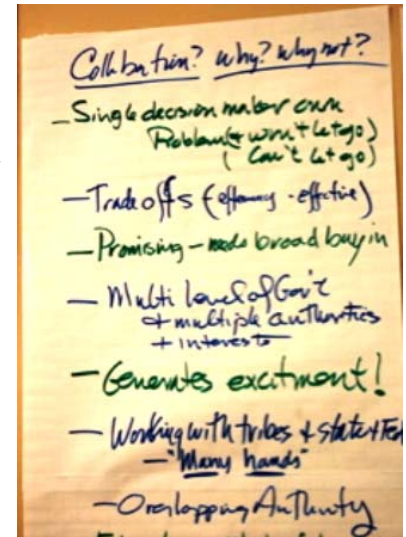 Collbortion? why? why not?
- Single decision maker own
Problem (+ won't let go)
(can't let go)
- Trade offs (efficiency - effective)
- Promising - needs broad buy in
- Multi level of Gov't
+ multiple authorities
+ interests
- Generates excitment!
- Working with tribes + state + Fed
- "Many hands"
- Overlapping Authority